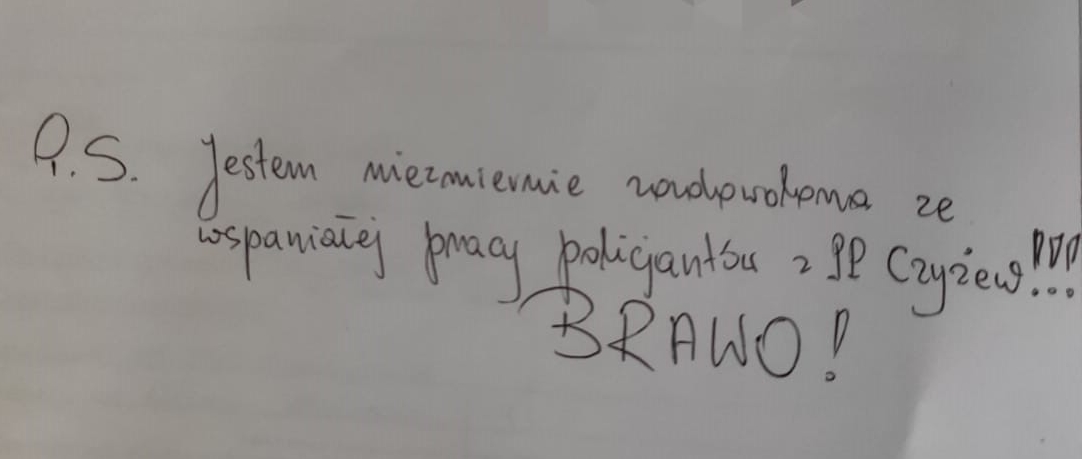 P.S. Jestem niezmiernie zadowolona ze
wspaniałej pracy policjantów z PP Czyżew!!!
BRAWO!